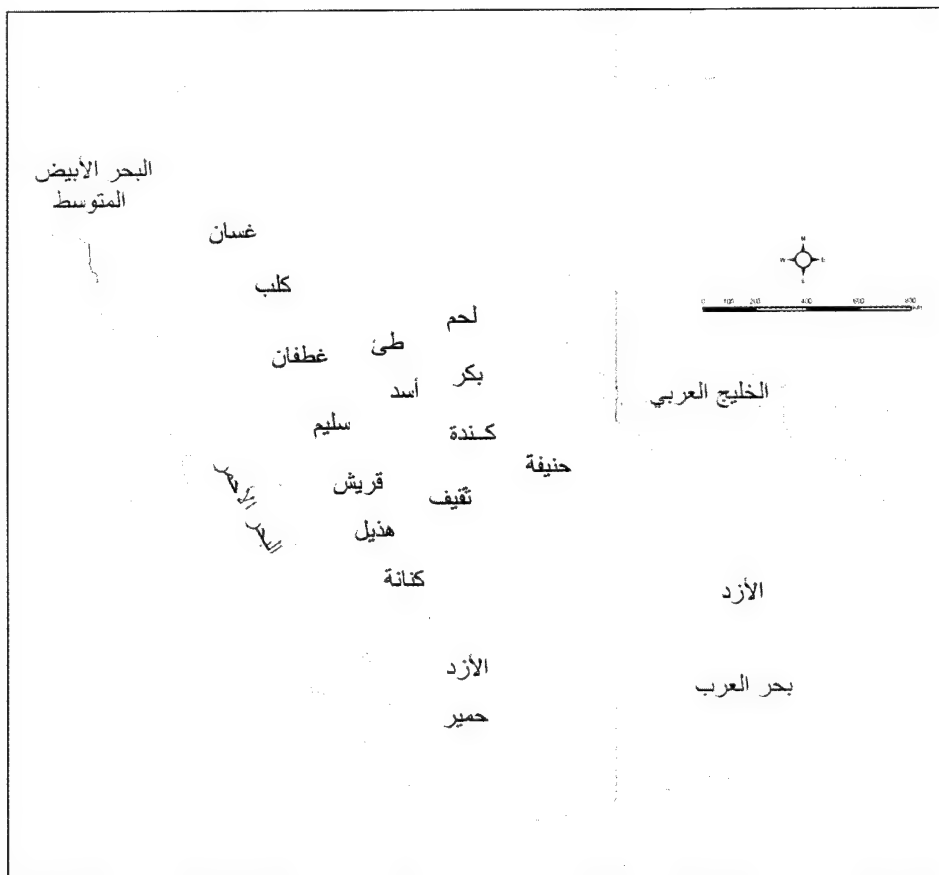 البحر الأبيض
المتوسط
غسان
كلب
لحم
طئ
غطفان
بكر
أسد
الخليج العربي
سليم
كـندة
حنيفة
قريش
ثقيف
البحر الأحمر
هذيل
كنانة
الأزد
الأزد
بحر العرب
حمير
N
W E
0 100 200 400 600 800